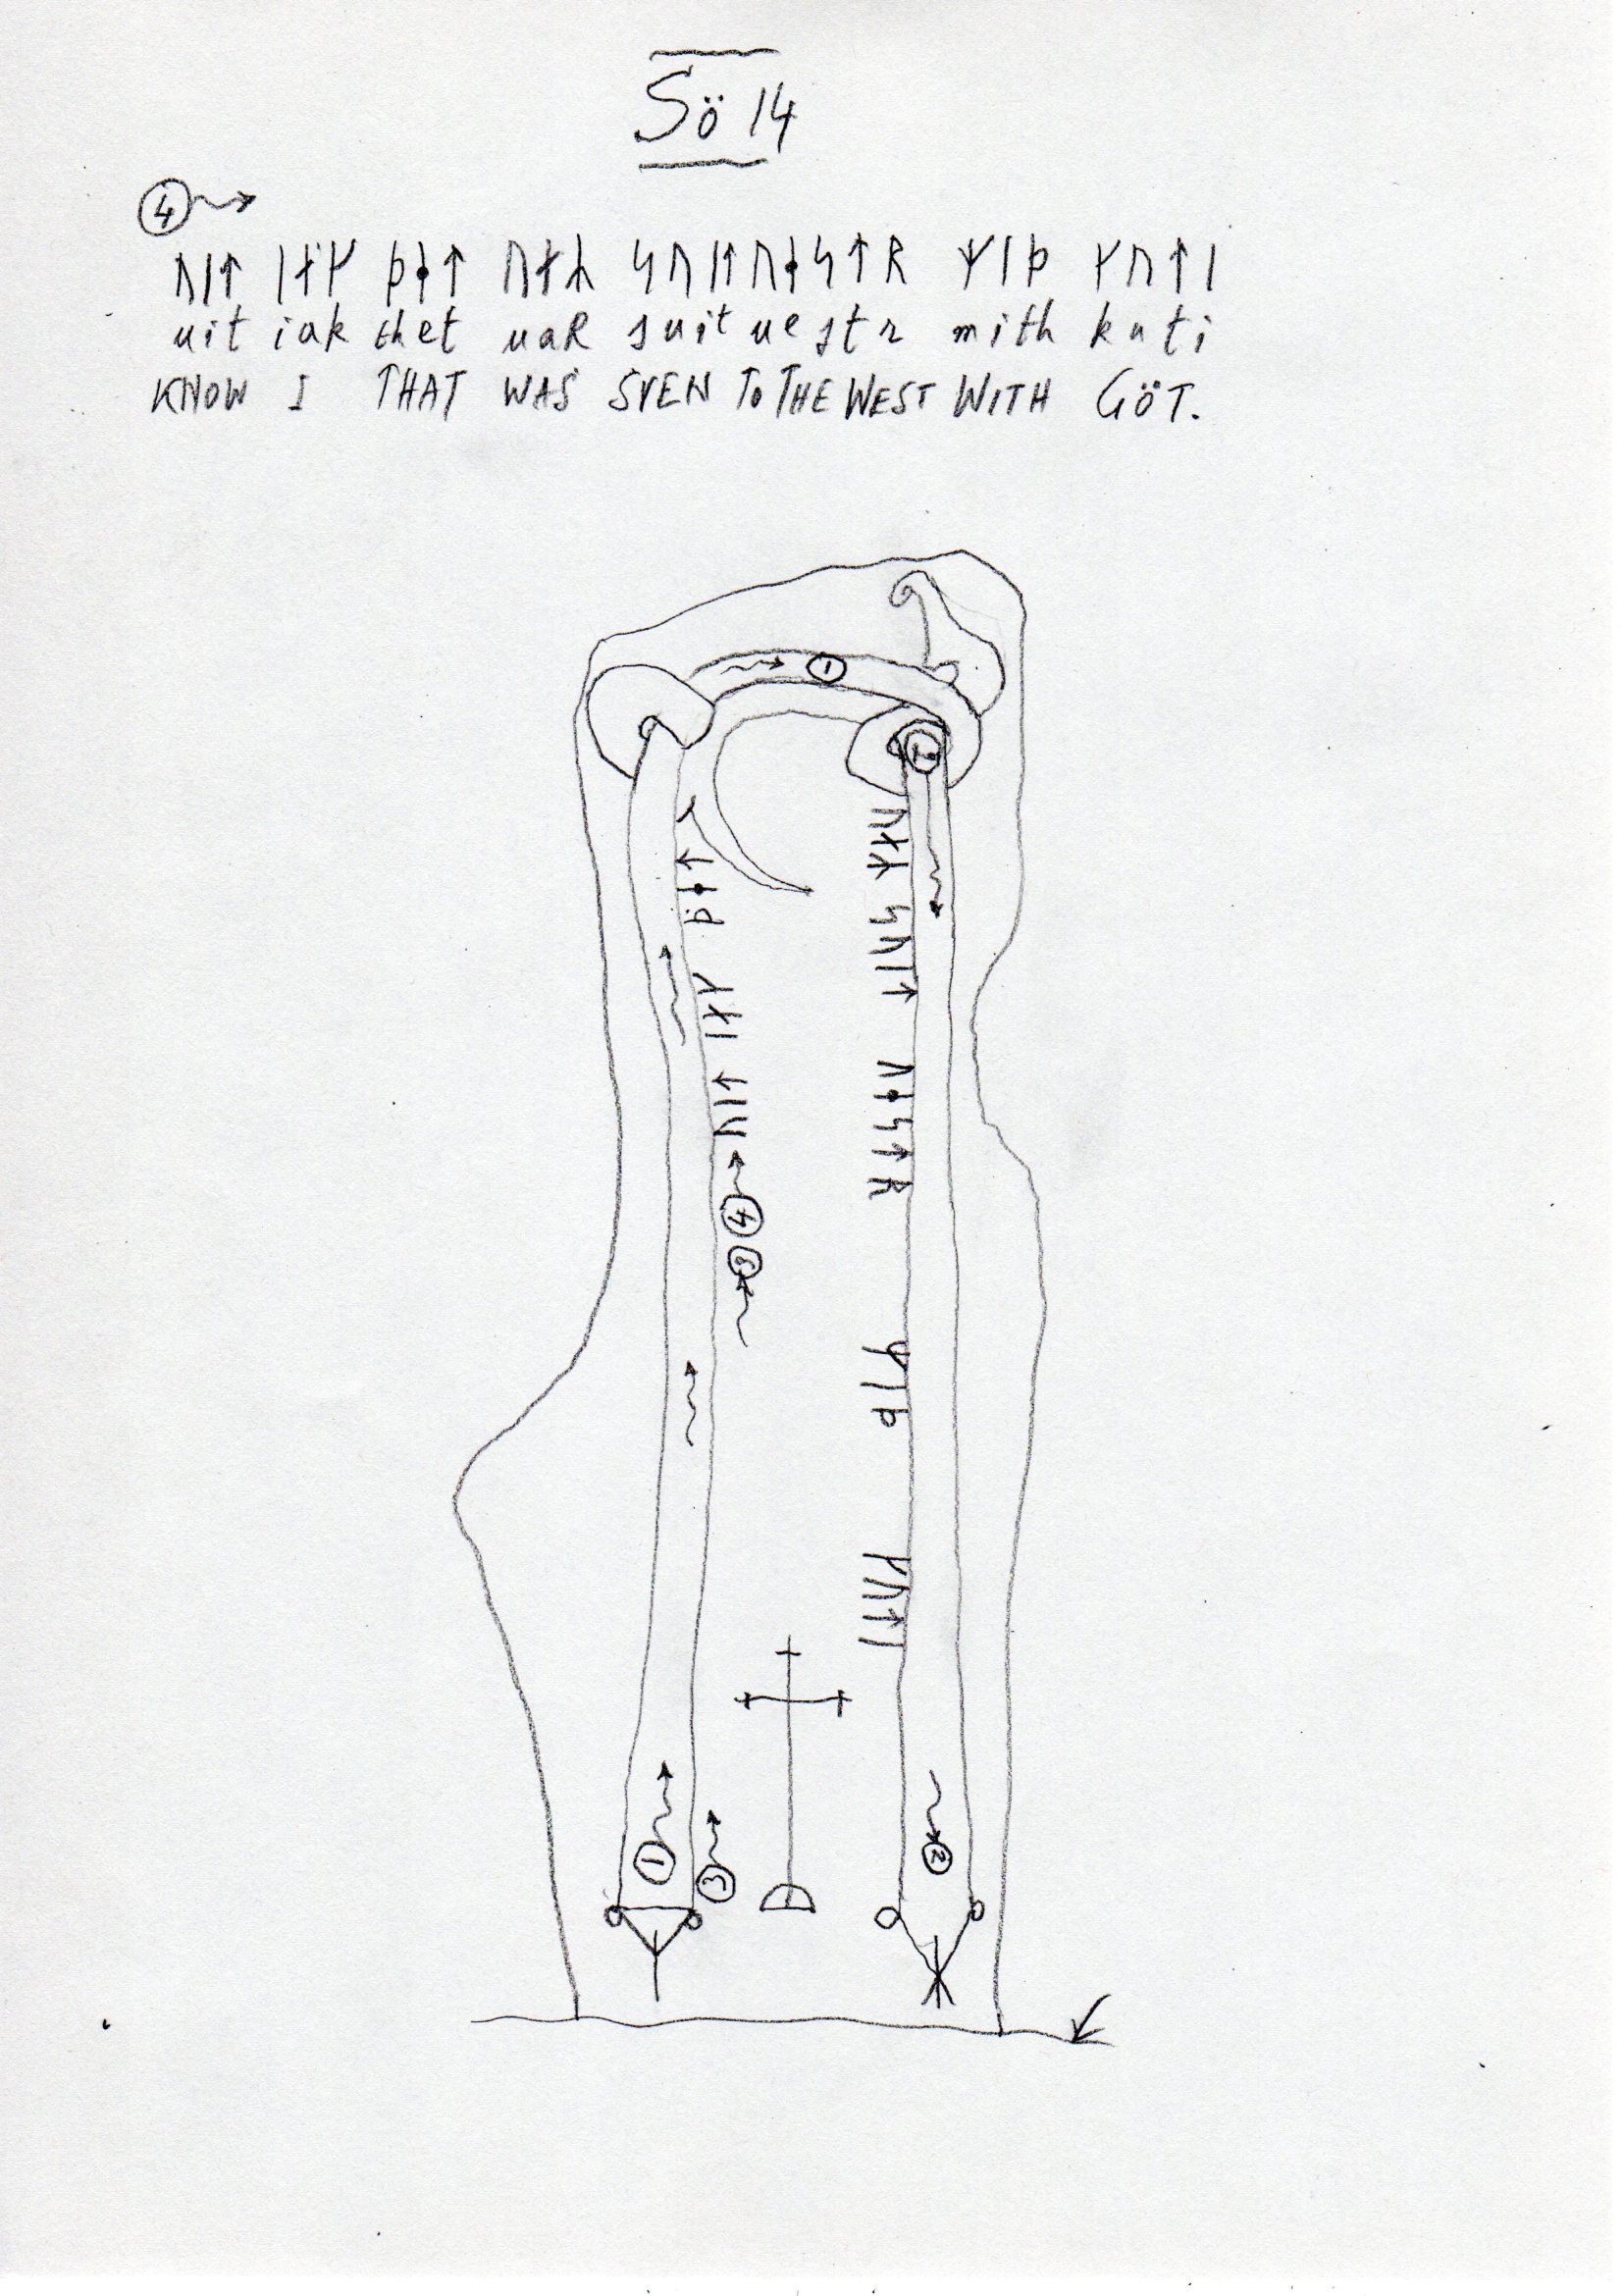 Sö 14
④
ᚢᛁᛏ ᛁᛅᚴ ᚦᛂᛏ ᚢᛅᛦ ᛋᚢᛁᛏᚢᛂᛋᛏᚱ ᛘᛁᚦ ᚴᚢᛏᛁ
uit iak thet uaR suit uestr mith kuti
KNOW I THAT WAS SVEN TO THE WEST WITH GÖT.
①
②
ᚢᛁᛏ ᛁᛅᚴ ᚦᛂᛏ
ᚢᛅᛦ ᛋᚢᛁᛏ ᚢᛂᛋᛏᚱ ᛘᛁᚦ ᚴᚢᛏᛁ
④
①
③
②